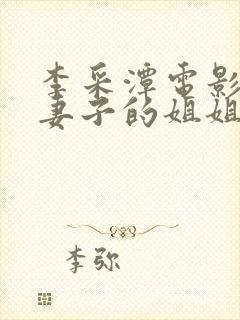 李采潭電影
妻子的姐姐
李弥